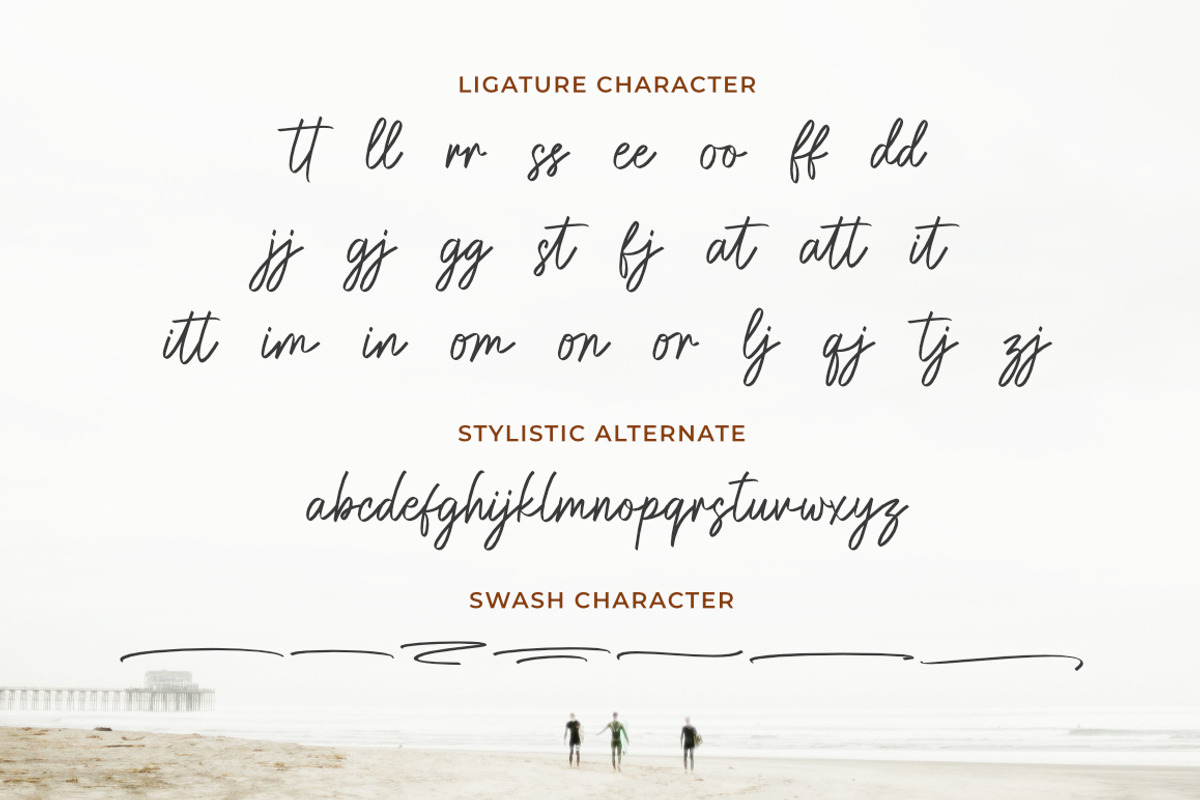 LIGATURE CHARACTER
tt ll rr ss ee oo ff dd
jj gj gg st fj at att it
itt im in om on or lj qj tj zj
STYLISTIC ALTERNATE
abcdefghijklmnopqrstuvwxyz
SWASH CHARACTER